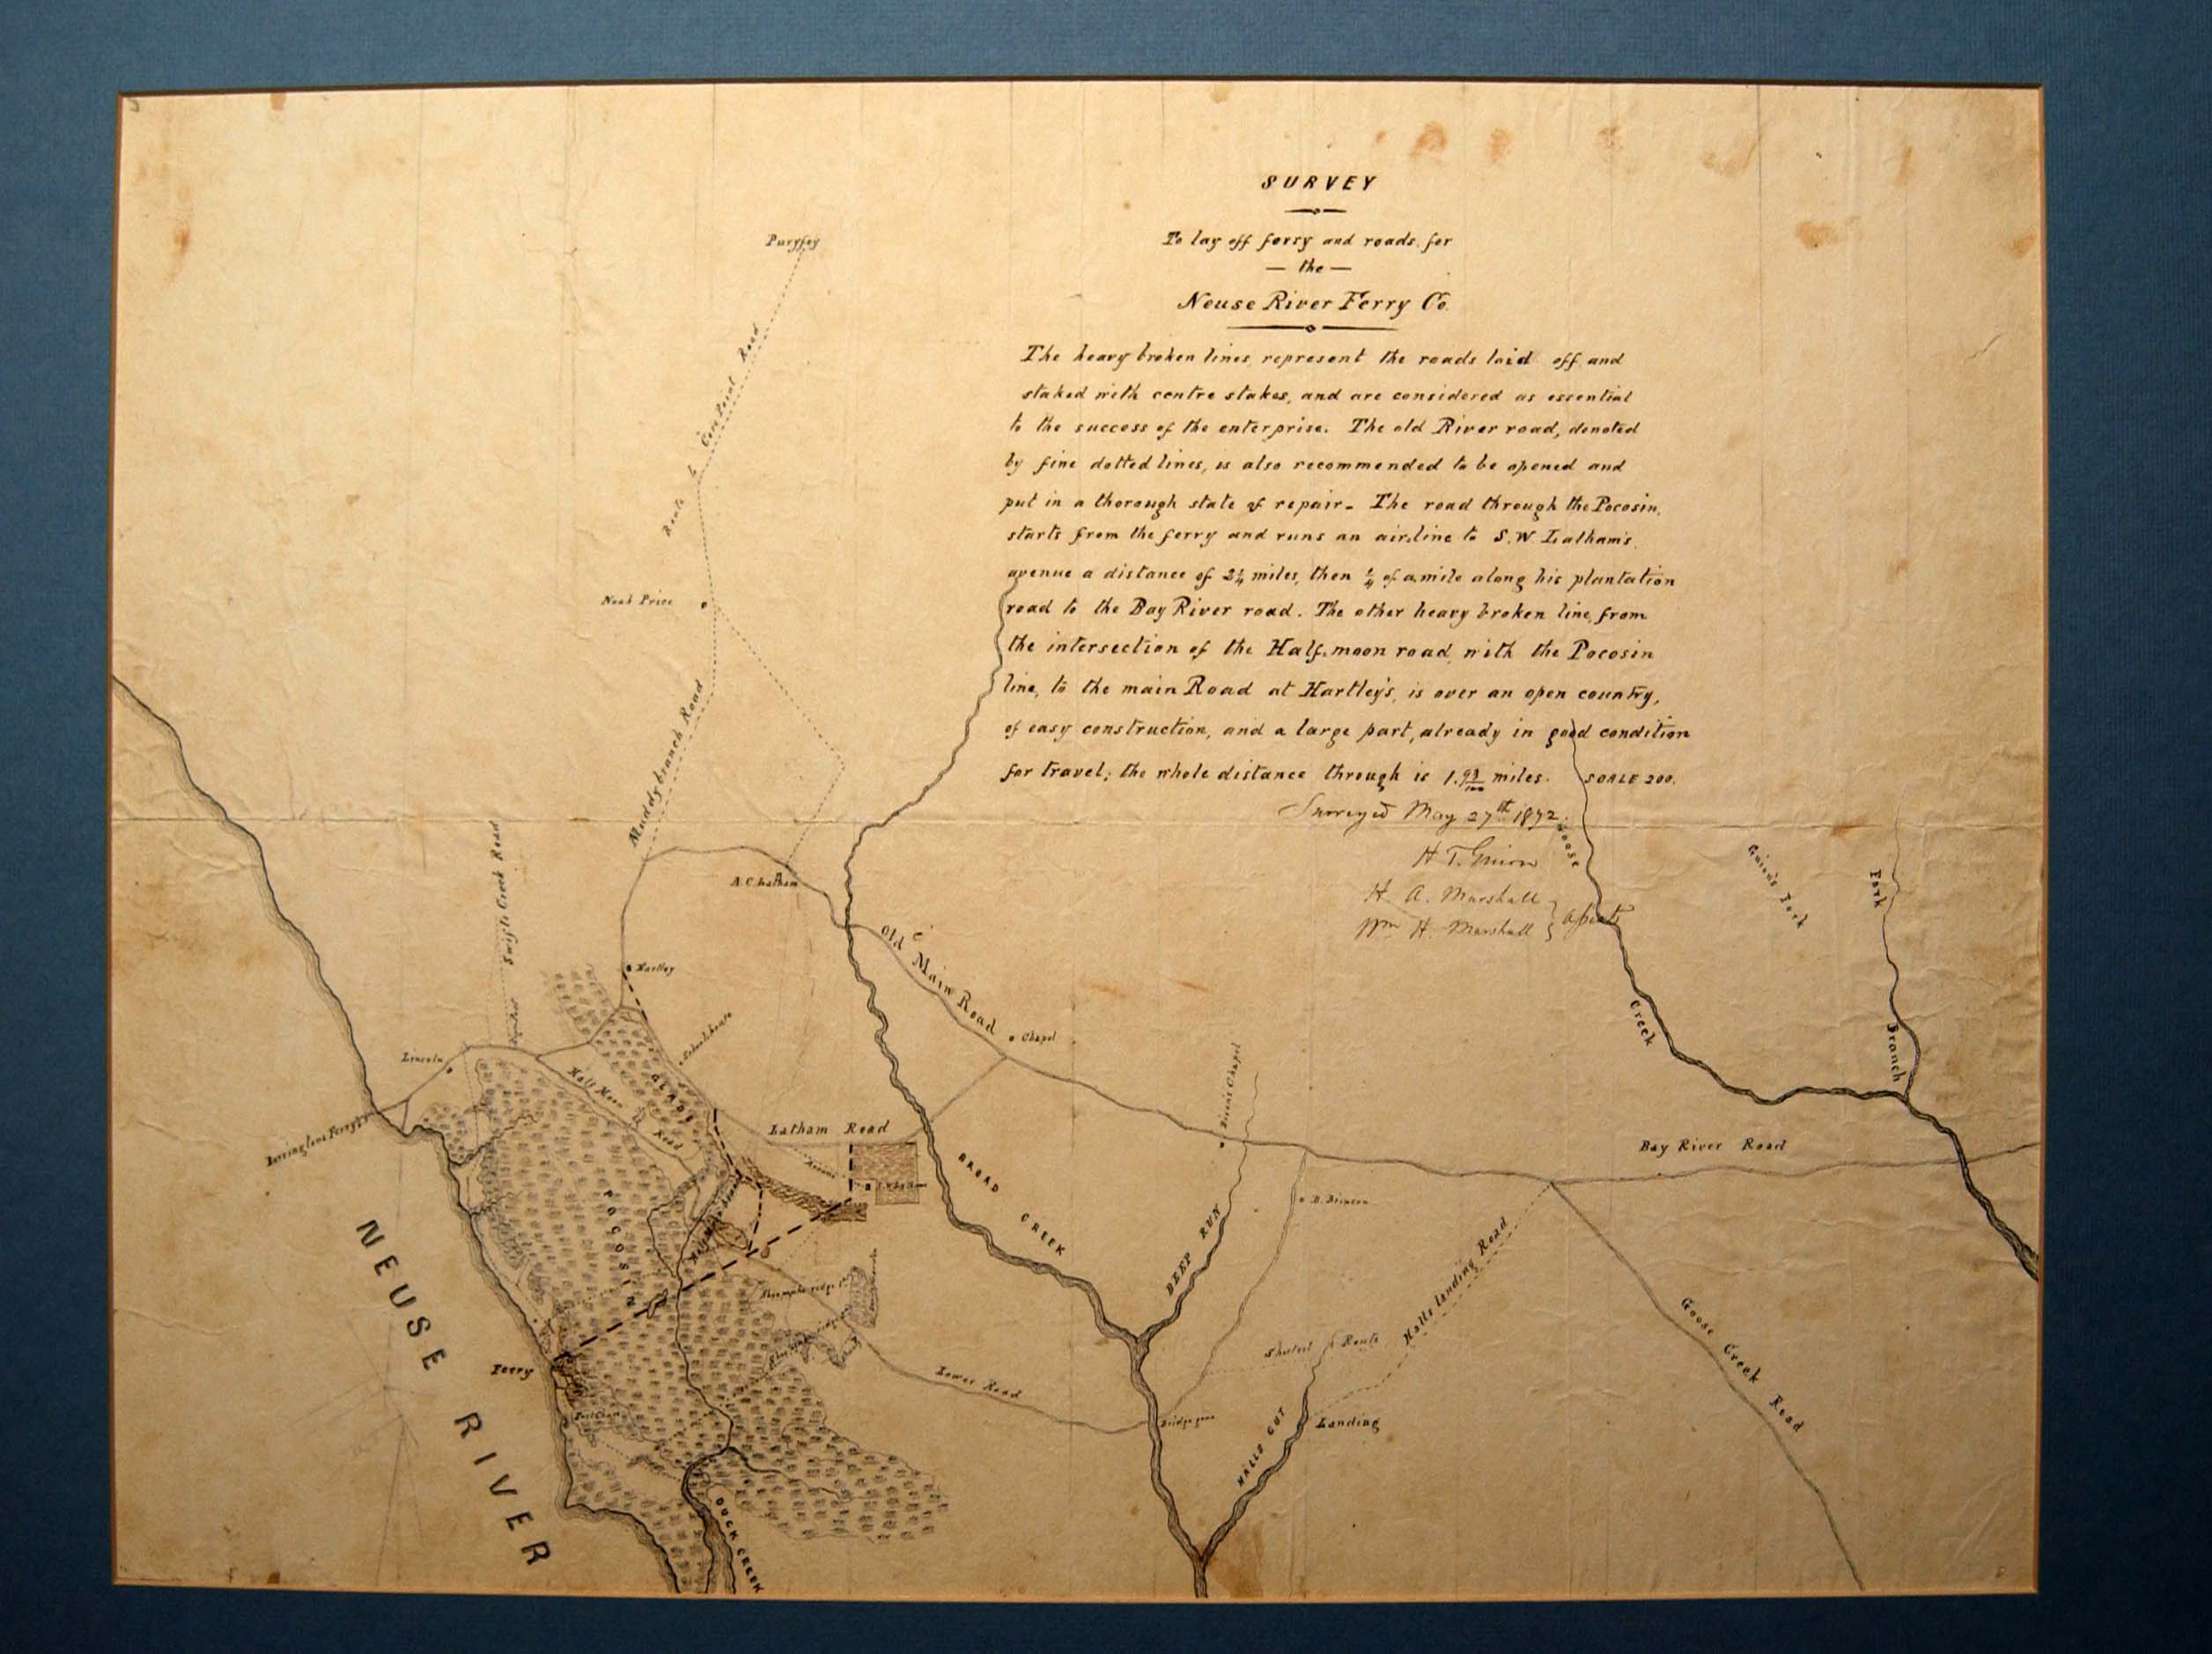 SURVEY
To lay off ferry and roads for
— the —
Neuse River Ferry Co.
The heavy broken lines, represent the roads laid off and
staked with centre stakes, and are considered as essential
to the success of the enterprise. The old River road, denoted
by fine dotted lines, is also recommended to be opened and
put in a thorough state of repair. The road through the Pocosin,
starts from the ferry and runs an air line to S.W. Latham's
avenue a distance of 2¼ miles, then ¼ of a mile along his plantation
road to the Bay River road. The other heavy broken line, from
the intersection of the Half moon road, with the Pocosin
line, to the main Road at Hartley's, is over an open country,
of easy construction, and a large part, already in good condition
for travel; the whole distance through is 1.93/100 miles. SCALE 200.
Surveyed May 27th 1872.
H. T. Guion
H. A. Marshall
Wm H. Marshall
Puryfoy
Route to Core Point Road
Noah Price
Muddybranch Road
Swift Creek Road
A.C. Latham
Hartley
Schoolhouse
Old Main Road
Chapel
Goose Creek
Guion's Fork
Fork Branch
Lincoln
Half Moon Road
GLADE
Latham Road
POCOSIN
BROAD CREEK
DEEP RUN
Chapel
Bay River Road
Halls landing Road
Goose Creek Road
Shortest Route
HALLS GUT
Landing
Lower Road
Ferry
NEUSE RIVER
DUCK CREEK